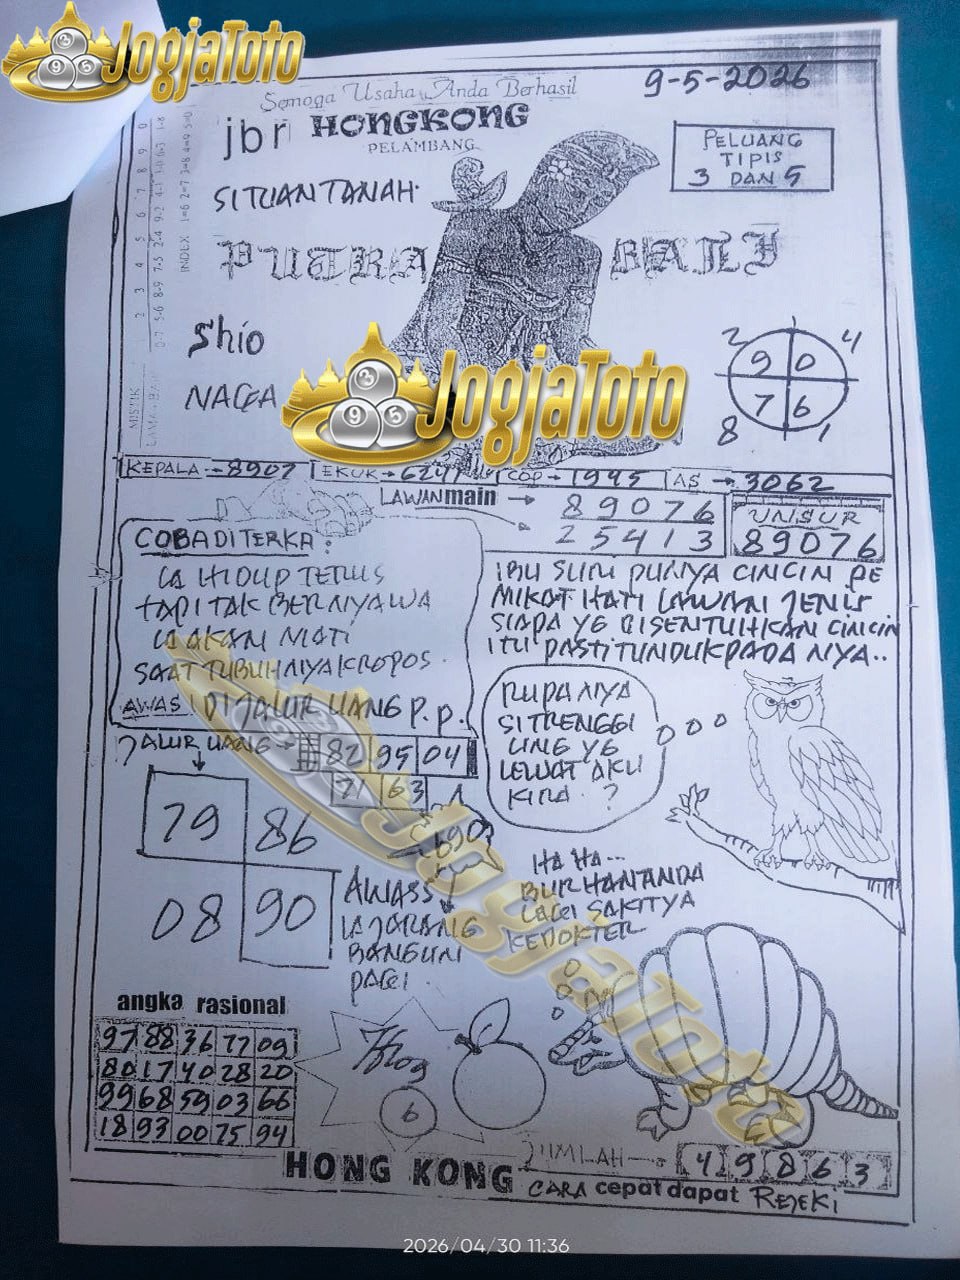 JogjaToto
Semoga Usaha Anda Berhasil
9-5-2026
jbr HONGKONG
PELAMBANG
PELUANG
TIPIS
3 DAN 5
SITUANTANAH
PUTRA BALI
Shio
NAGA
2 4
9 0
7 6
8 1
JogjaToto
KEPALA → 8907
EKUK → 6297
COP → 1945
AS → 3062
LAWANmain → 89076
25413
UNSUR
89076
COBADITERKA:
IA HIDUP TERUS
TAPI TAK BERNYAWA
IA AKAN MATI
SAAT TUBUHNYA KROPOS.
AWAS DI JALUR UANG P.P.
IBU SURI PUNYA CINCIN PE
MIKAT HATI LAWAN JENIS
SIAPA YG DISENTUHKAN CINCIN
ITU PASTI TUNDUK PADA NYA..
RUPANYA
SITRENGGI
LING YG
LEWAT AKU
KIRA.?
JALUR UANG → 82 95 04
71 63
79 86
08 90
690
AWASS
IA JARANG
BANGUN
PAGI.
HA HA...
BURHANANDA
LAGI SAKITYA
KEDOKTER
angka rasional
97 88 36 77 09
80 17 40 28 20
99 68 59 03 66
18 93 00 75 94
6
JogjaToto
JUMLAH → 4 9 8 6 3
HONG KONG
CARA cepat dapat REJEKI
2026/04/30 11:36